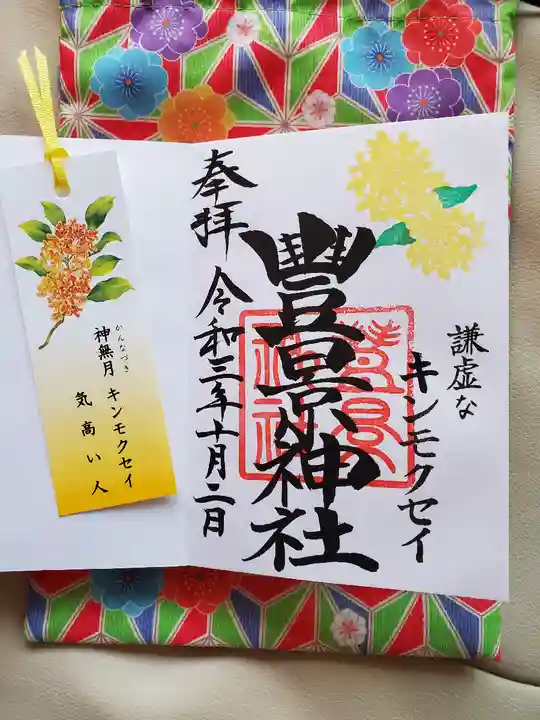 謙虚な
キンモクセイ
豐景神社
豊景
神社
奉拝
令和三年十月二日
かんなづき
神無月
キンモクセイ
気高い人